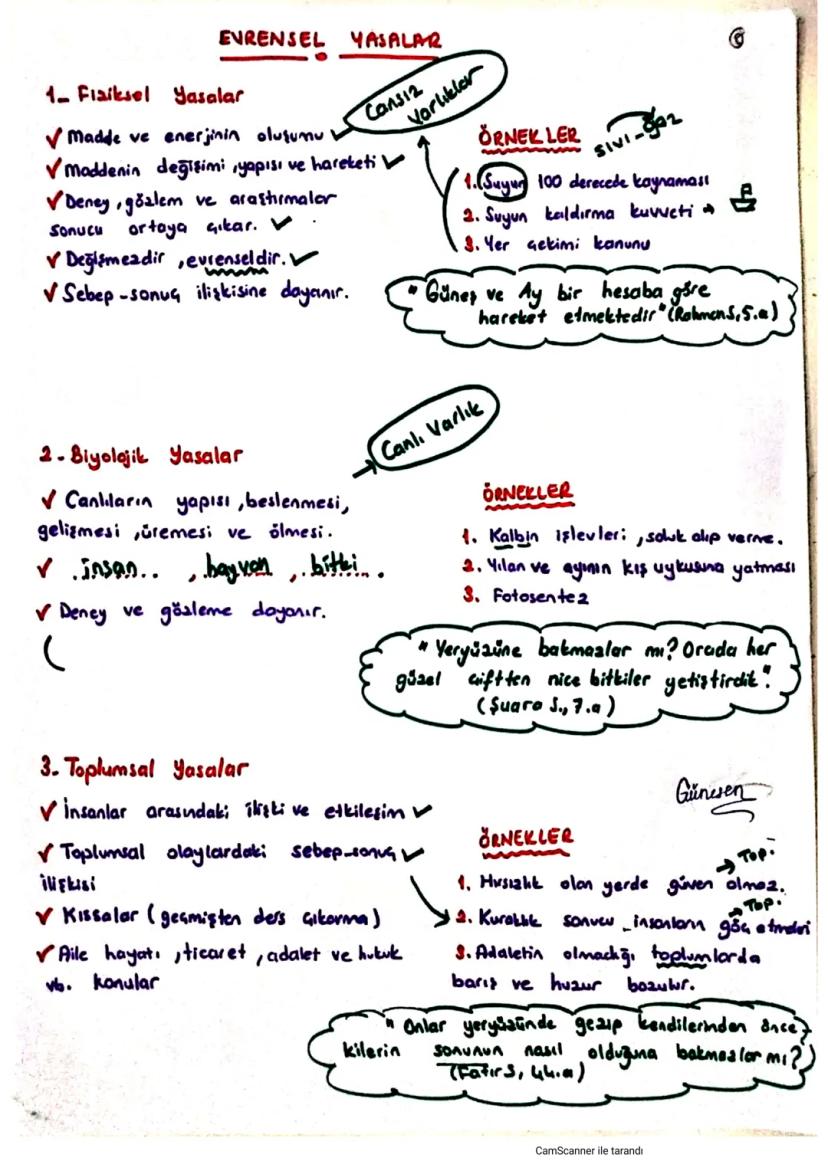 EVRENSEL YASALAR
1- Fiziksel Yasalar
Cansız Varlıklar
✓ Madde ve enerjinin oluşumu ✓
✓ Maddenin değişimi, yapısı ve hareketi ✓
✓ Deney, gözlem ve araştırmalar
sonucu ortaya çıkar. ✓
✓ Değişmezdir, evrenseldir. ✓
✓ Sebep-sonuç ilişkisine dayanır.
ÖRNEKLER
sıvı-gaz
1. Suyun 100 derecede kaynaması
2. Suyun kaldırma kuvveti →
3. Yer çekimi kanunu
"Güneş ve Ay bir hesaba göre
hareket etmektedir" (Rahman S, 5.a)
2- Biyolojik Yasalar
Canlı Varlık
✓ Canlıların yapısı, beslenmesi,
gelişmesi, üremesi ve ölmesi.
✓ .insan.. , .hayvan , .bitki..
✓ Deney ve gözleme dayanır.
ÖRNEKLER
1. Kalbin işlevleri, soluk alıp verme.
2. Yılan ve ayının kış uykusuna yatması
3. Fotosentez
"Yeryüzüne bakmazlar mı? Orada her
güzel çiftten nice bitkiler yetiştirdik".
(Şuara S., 7.a)
3- Toplumsal Yasalar
✓ İnsanlar arasındaki ilişki ve etkileşim ✓
✓ Toplumsal olaylardaki sebep-sonuç ✓
ilişkisi
✓ Kıssalar (geçmişten ders çıkarma)
✓ Aile hayatı, ticaret, adalet ve hukuk
vb. konular
ÖRNEKLER
→ Top.
1. Hırsızlık olan yerde güven olmaz.
→ Top.
2. Kuraklık sonucu insanların göç etmeleri
3. Adaletin olmadığı toplumlarda
barış ve huzur bozulur.
"Onlar yeryüzünde gezip kendilerinden önce-
kilerin sonunun nasıl olduğuna bakmazlar mı?"
(Fatır S, 44.a)
CamScanner ile tarandı